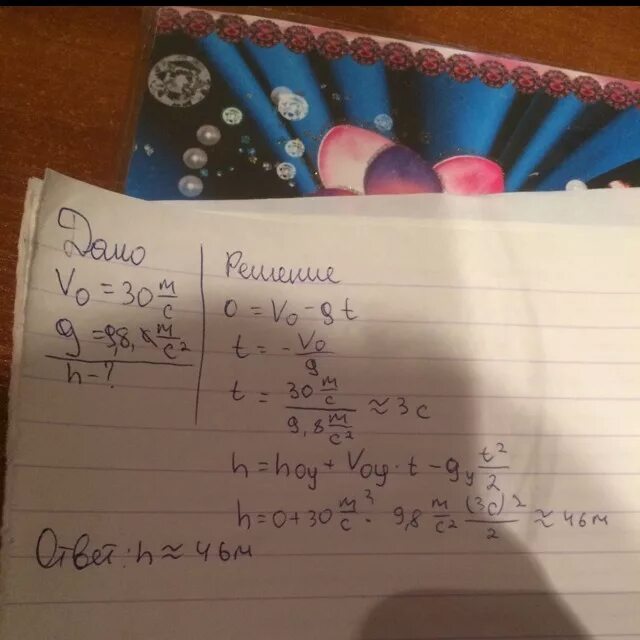 Дано
V₀ = 30 м/с
g = 9,8 м/с²
h - ?
Решение
0 = V₀ - gt
t = - V₀/g
t = 30 м/с / 9,8 м/с² ≈ 3 с
h = h₀y + V₀y · t - gy t²/2
h = 0 + 30 м/с · 9,8 м/с² (3с)²/2 ≈ 46м
Ответ: h ≈ 46м